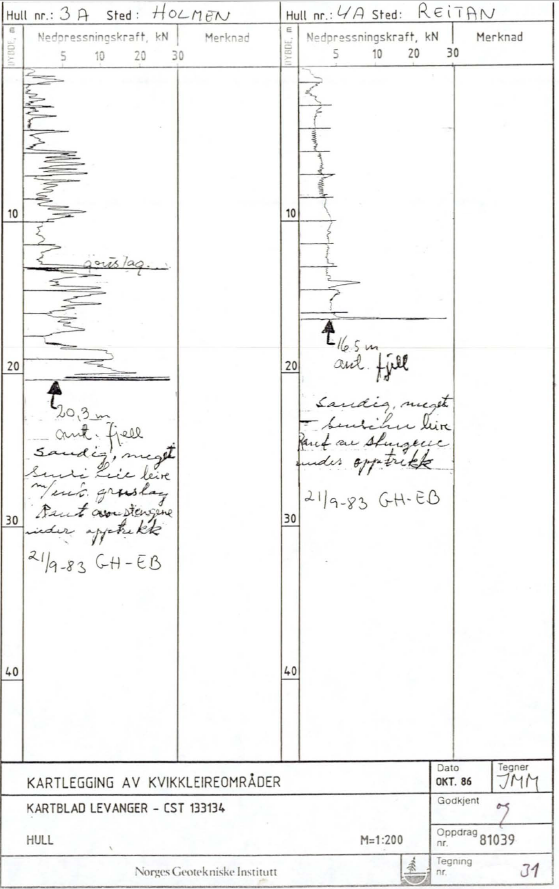 Hull nr.: 3A Sted: HOLMEN
DYBDE, m
Nedpressningskraft, kN
Merknad
5 10 20 30
10
gruslag
20
20,3 m
ant. fjell
Sandig, meget
leire
m/enk. gruslag
under opptrekk
21/9-83 GH-EB
30
40
Hull nr.: 4A Sted: REITAN
DYBDE, m
Nedpressningskraft, kN
Merknad
5 10 20 30
10
16,5 m
ant. fjell
20
Sandig, meget
leire
under opptrekk
21/9-83 GH-EB
30
40
KARTLEGGING AV KVIKKLEIREOMRÅDER
KARTBLAD LEVANGER - CST 133134
HULL M=1:200
Norges Geotekniske Institutt
Dato
OKT. 86
Tegner
JMM
Godkjent
Oppdrag nr. 81039
Tegning nr. 31